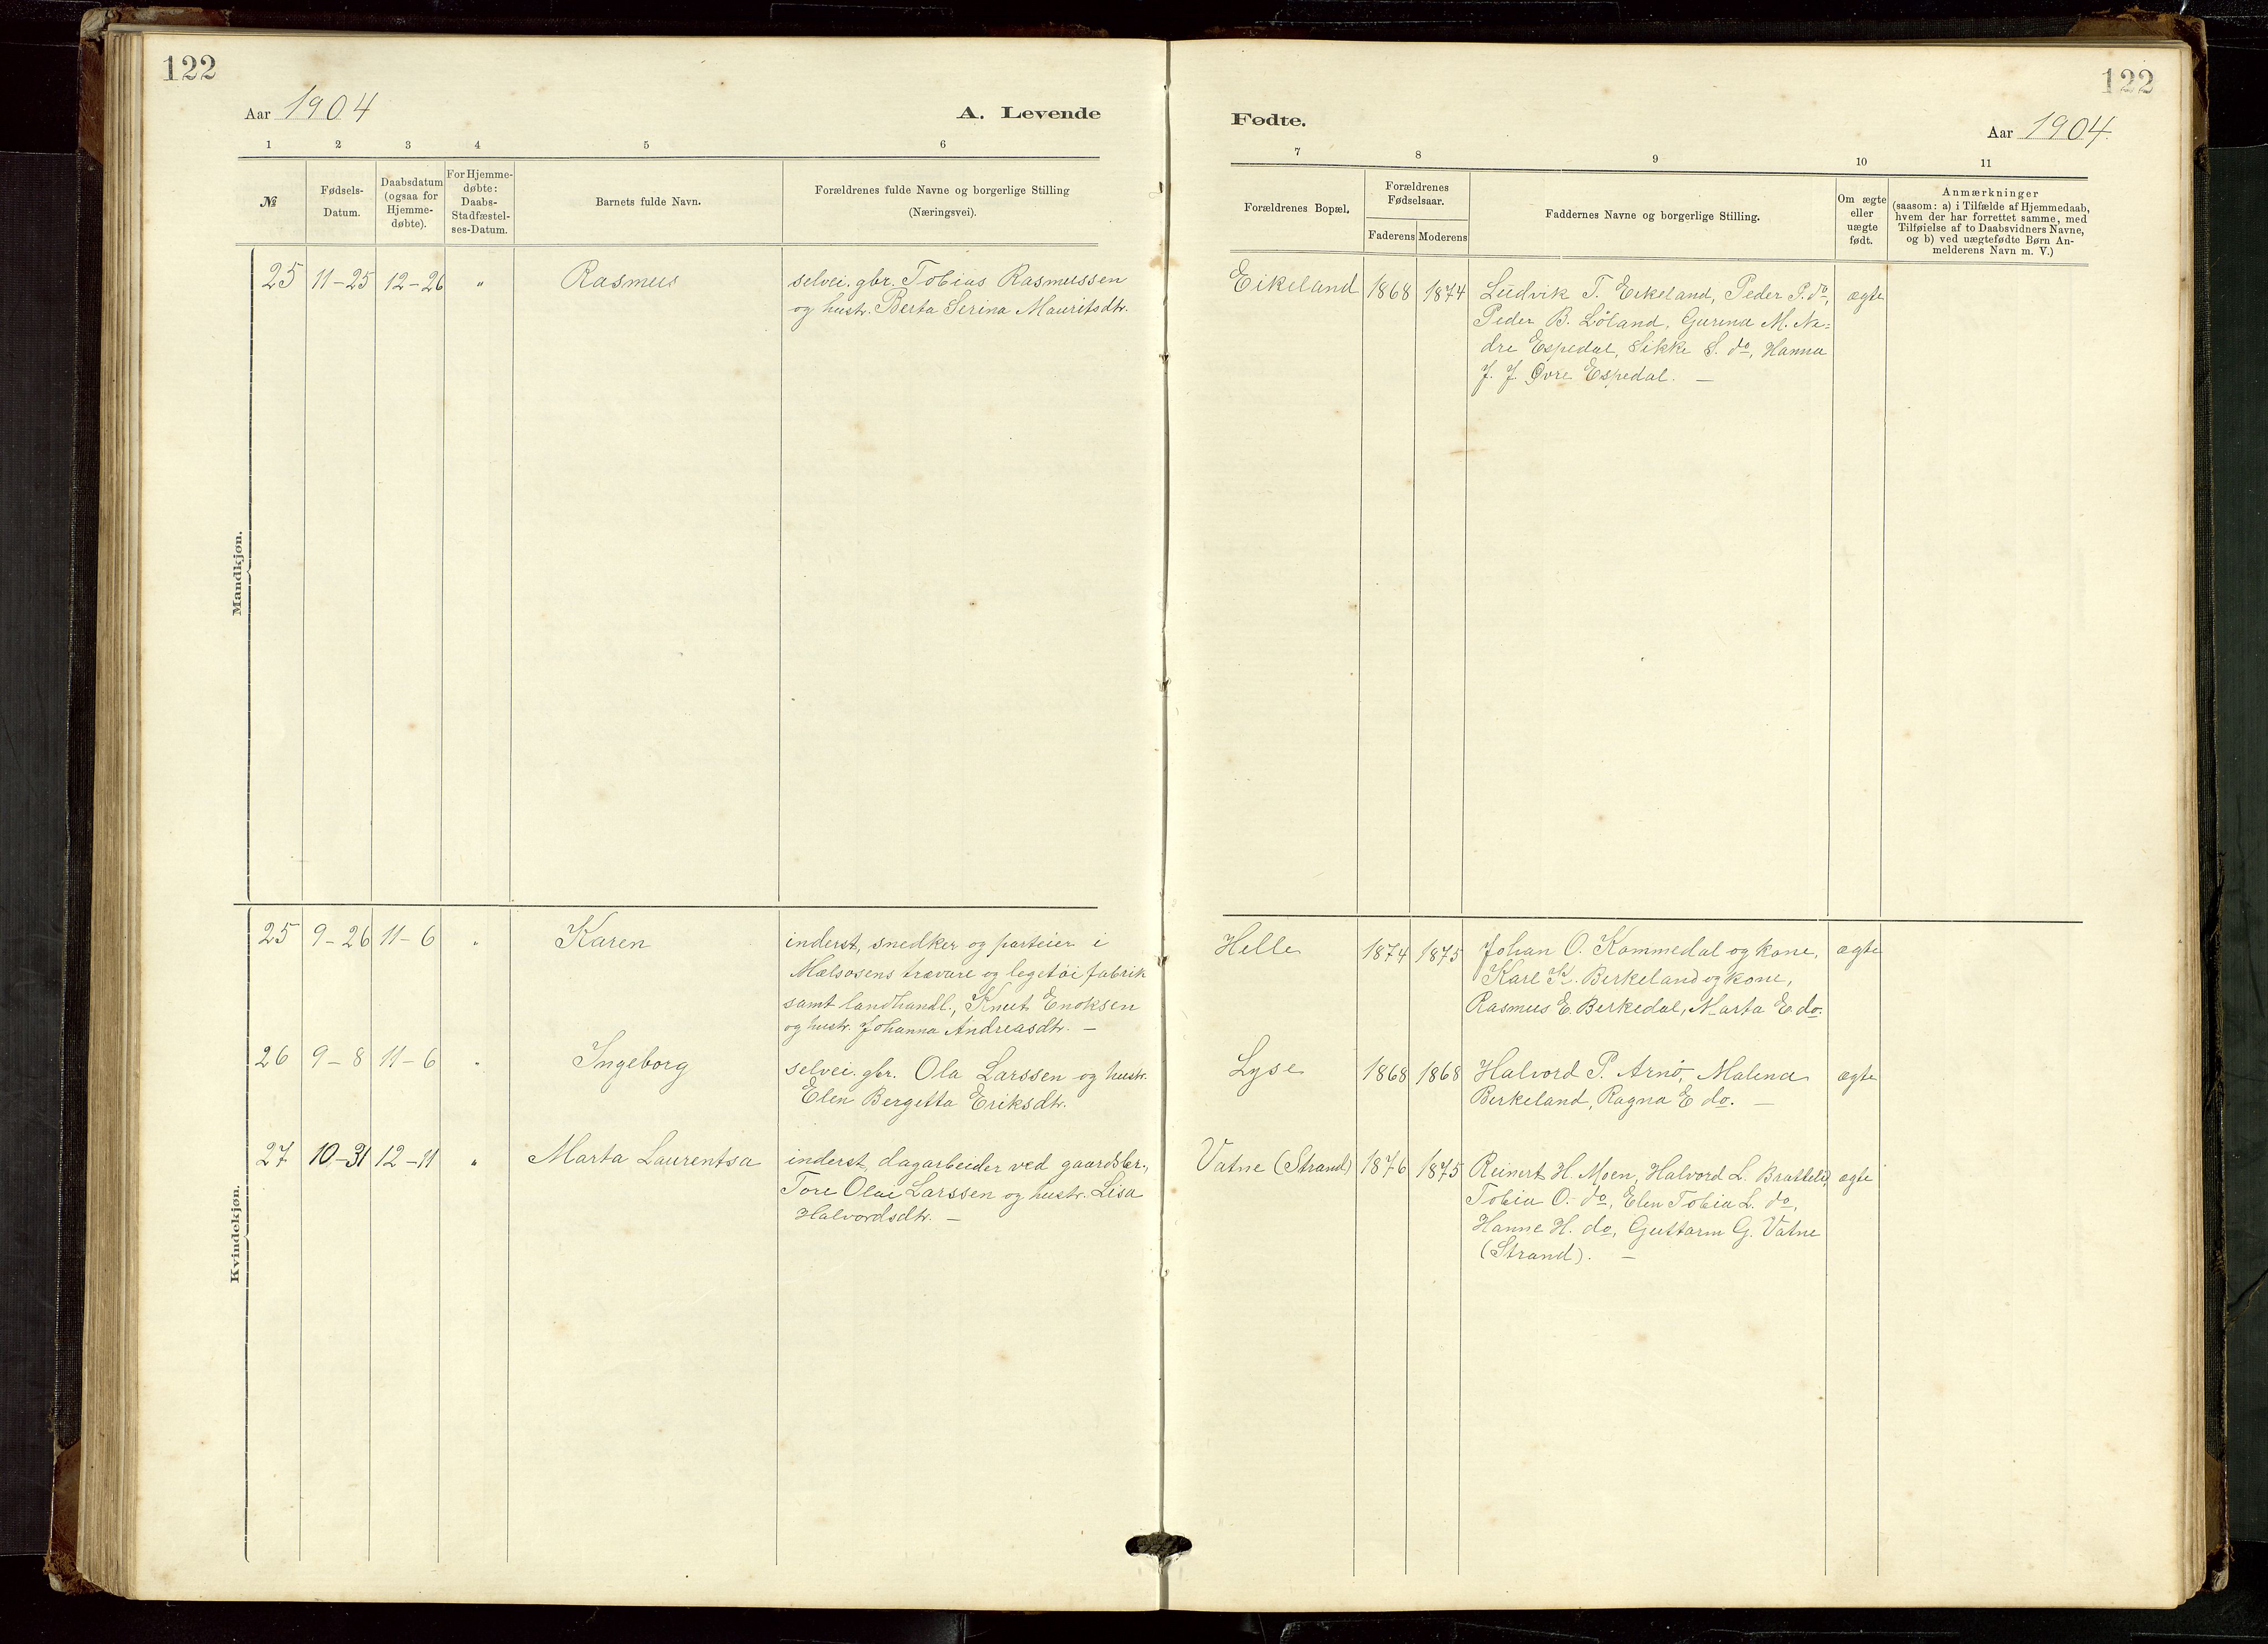 122
Aar 1904
A. Levende
1 2 3 4 5 6
№
Fødsels-
Datum.
Daabsdatum
(ogsaa for
Hjemme-
døbte).
For Hjemme-
døbte:
Daabs-
Stadfæstel-
ses-Datum.
Barnets fulde Navn.
Forældrenes fulde Navne og borgerlige Stilling
(Næringsvei).
Mandkjøn.
25 11-25 12-26 " Rasmus selvei. gbr. Tobias Rasmussen
og hustr. Berta Serina Mauritsdtr.
Kvindekjøn.
25 9-26 11-6 " Karen inderst, snedker og parteier i
Mælsosens trævare og legetøi fabrik
samt landhandl., Knut Enoksen
og hustr. Johanna Andreasdtr. —
26 9-8 11-6 " Ingeborg selvei. gbr. Ola Larssen og hustr.
Elen Bergetta Eriksdtr.
27 10-31 12-11 " Marta Laurentsa inderst, dagarbeider ved gaardsbr.,
Tore Olai Larssen og hustr. Lisa
Halvordsdtr. —
122
Fødte.
Aar 1904.
7 8 9 10 11
Forældrenes Bopæl.
Forældrenes
Fødselsaar.
Faderens Moderens
Faddernes Navne og borgerlige Stilling.
Om ægte
eller
uægte
født.
Anmærkninger
(saasom: a) i Tilfælde af Hjemmedaab,
hvem der har forrettet samme, med
Tilføielse af to Daabsvidners Navne,
og b) ved uægtefødte Børn An-
melderens Navn m. V.)
Eikeland 1868 1874 Ludvik T. Eikeland, Peder P. do, ægte
Peder B. Löland, Gurina M. Ne=
dre Espedal, Sikke S. do, Hanna
J. J. Øvre Espedal. —
Helle 1874 1875 Johan O. Kommedal og kone, ægte
Karl K. Berkeland og kone,
Rasmus E. Berkedal, Marta E. do.
Lyse 1868 1868 Halvord P. Arnö, Malena ægte
Berkeland, Ragna E do. —
Vatne (Strand) 1876 1875 Reinert H. Moen, Halvord L. Bratteli, ægte
Tobia O. do, Elen Tobia L. do,
Hanne H. do, Guttorm G. Vatne
(Strand). —